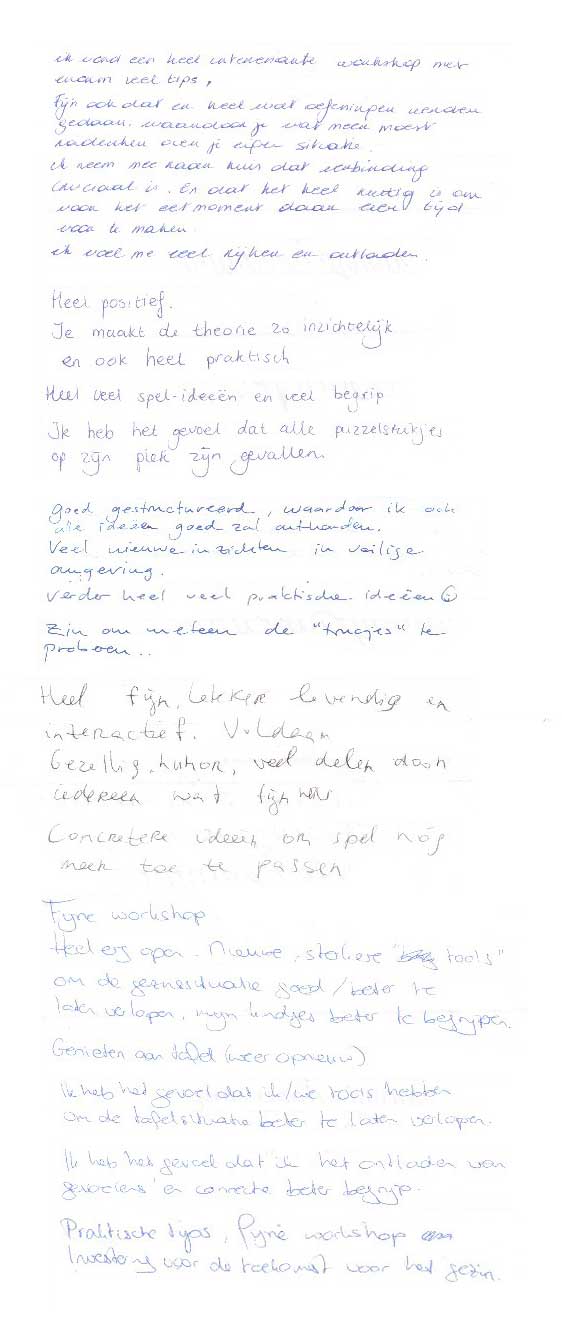 ik vond een heel interessante workshop met
enorm veel tips,
Fijn ook dat er heel wat oefeningen werden
gedaan. waardoor je wat meer moest
nadenken over je eigen situatie.
ik neem mee naar huis dat verbinding
cruciaal is. En dat het heel nuttig is om
voor het eetmoment daar een tijd
voor te maken.
ik voel me veel rijker en ontladen.
Heel positief.
Je maakt de theorie zo inzichtelijk
en ook heel praktisch
Heel veel spel-ideeën en veel begrip
Ik heb het gevoel dat alle puzzelstukjes
op zijn plek zijn gevallen.
Goed gestructureerd, waardoor ik ook
alle ideeën goed zal onthouden.
Veel nieuwe inzichten in veilige
omgeving.
Verder heel veel praktische ideeën
Zin om meteen de "trucjes" te
proberen..
Heel fijn, lekker levendig en
interactief. Voldaan
Gezellig, humor, veel delen door
iedereen wat fijn was
Concretere ideeën om spel nóg
meer toe te passen
Fijne workshop
Heel erg open. Nieuwe, "tools"
om de gezinssituatie goed/beter te
laten verlopen, mijn kindjes beter te begrijpen.
Genieten aan tafel (weer opnieuw)
Ik heb het gevoel dat ik/we tools hebben
om de tafelsituatie beter te laten verlopen.
Ik heb het gevoel dat ik het ontladen van
gevoelens en connectie beter begrijp.
Praktische tips, Fijne workshop
Investering voor de toekomst voor het gezin.